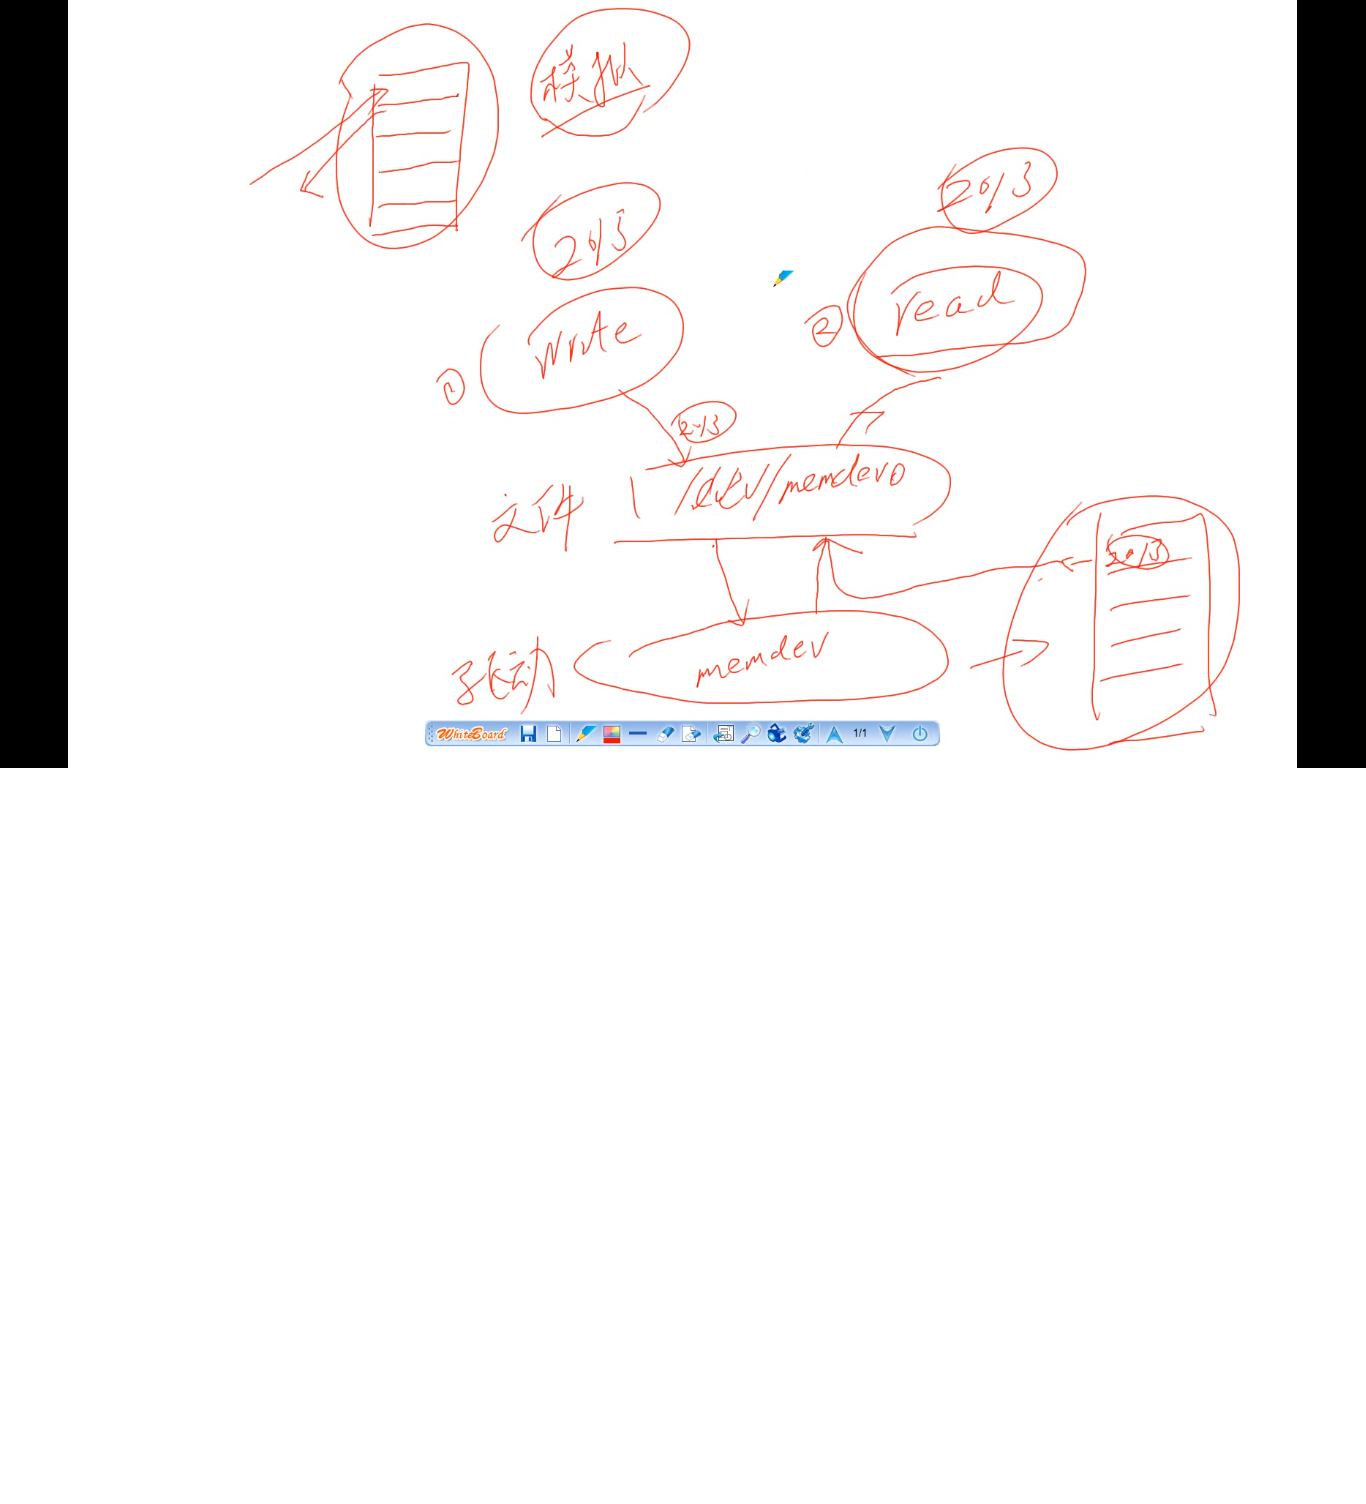 模拟
2013
2013
write
read
①
②
2013
文件
/dev/memdev0
2013
驱动
memdev
WhiteBoard
1/1